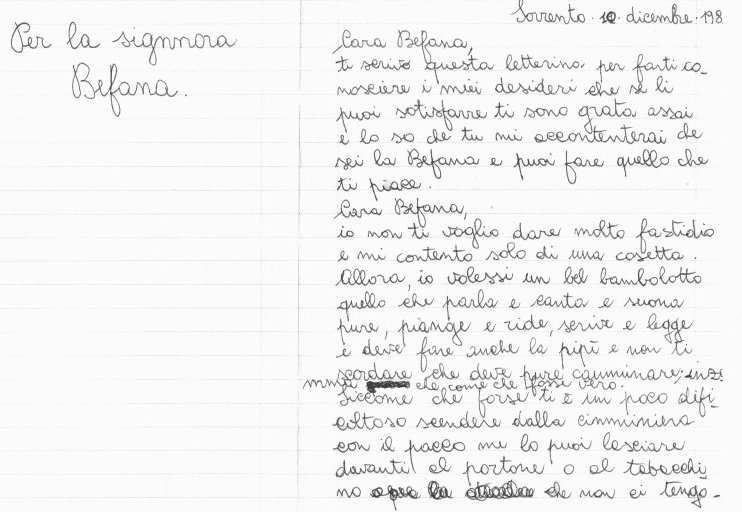 Per la signmora
Befana.
Sorrento 10 dicembre 198
Cara Befana,
ti scrivo questa letterina per farti co-
nosciere i miei desideri che se li
puoi sotisfarre ti sono grata assai
e lo so che tu mi accontenterai che
sei la Befana e puoi fare quello che
ti piace.
Cara Befana,
io non ti voglio dare molto fastidio
e mi contento solo di una cosetta.
Allora, io volessi un bel bambolotto
quello che parla e canta e suona
pure, piange e ride, scrive e legge
e deve fare anche la pipì e non ti
scordare che deve pure camminare;
che, come che fossi vero.
Siccome che forse ti è un poco difi-
coltoso scendere dalla cimminiera
con il pacco me lo puoi lasciare
davanti al portone o al tabacchi-
no che non ci tengo-